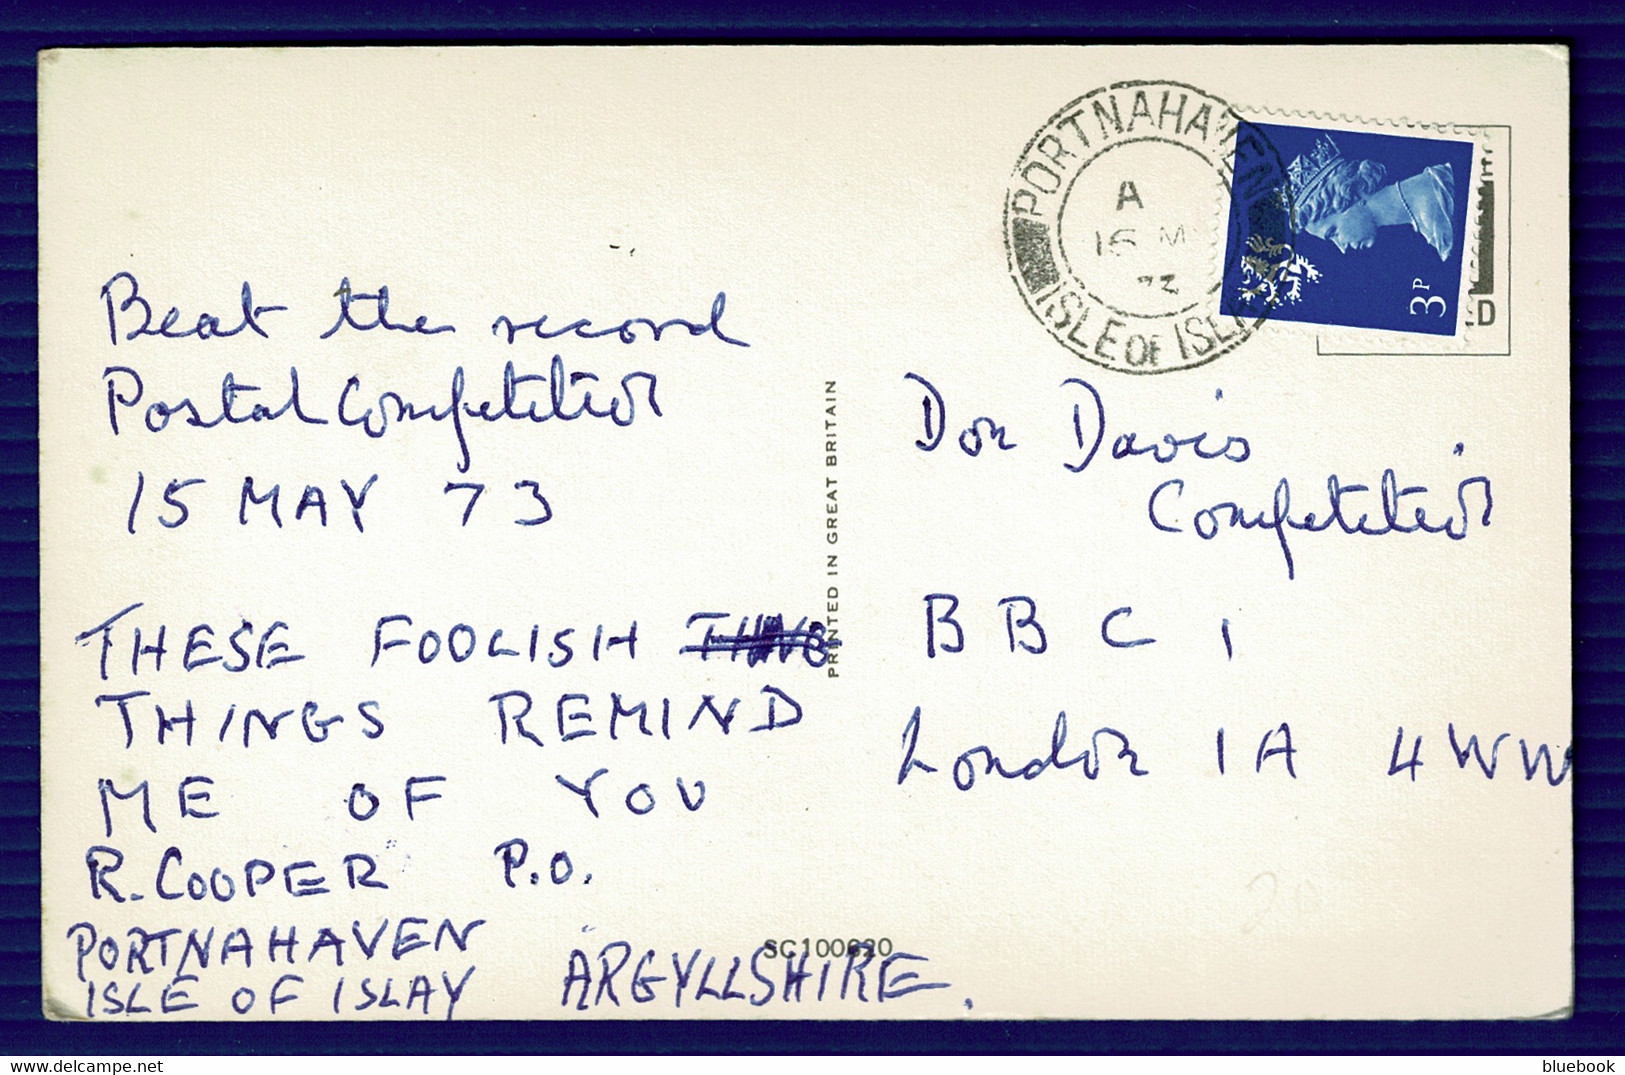 Beat the record
Postal Competition
15 MAY 73
THESE FOOLISH
THINGS REMIND
ME OF YOU
R. COOPER P.O.
PORTNAHAVEN
ISLE OF ISLAY ARGYLLSHIRE.
PRINTED IN GREAT BRITAIN
SC100620
PORTNAHAVEN
A
ISLE OF ISLAY
3P
Don Davis
Competition
BBC 1
London 1A 4WW
bluebook